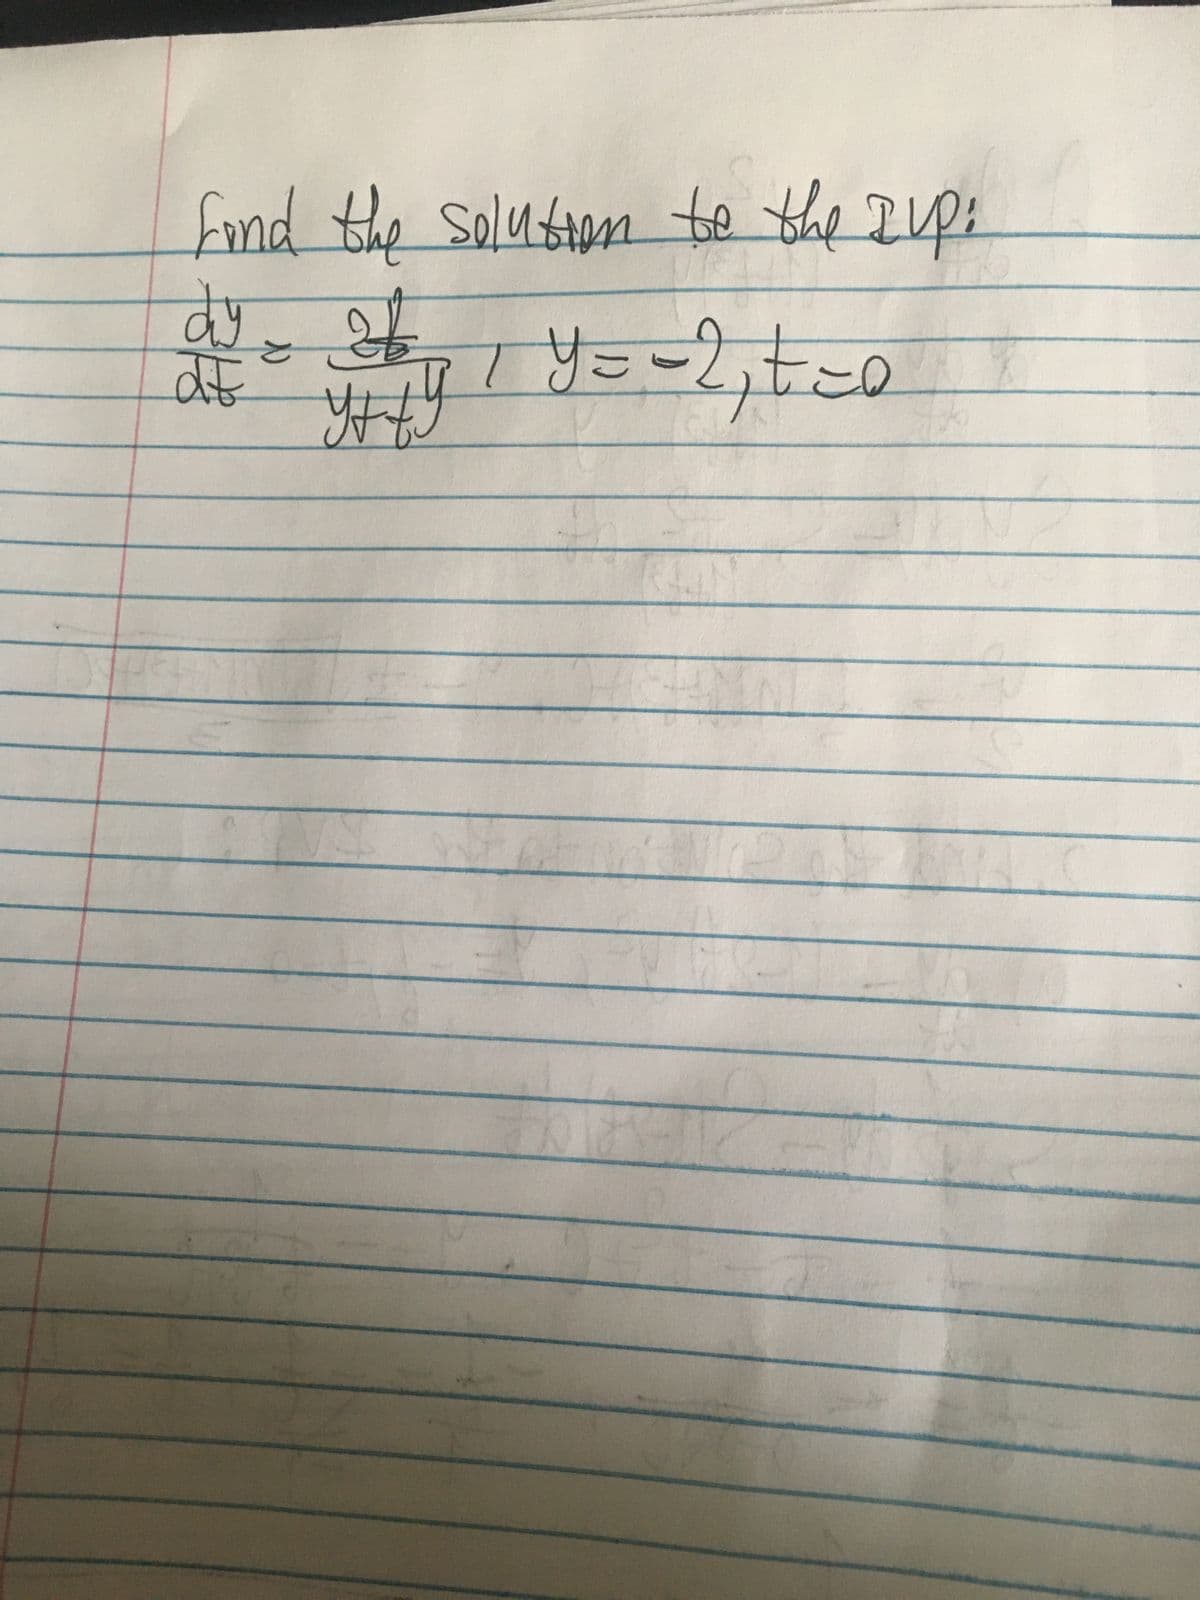 Find the solution to the IVP:
dy/dt = 2t/(y+ty), y=-2, t=0